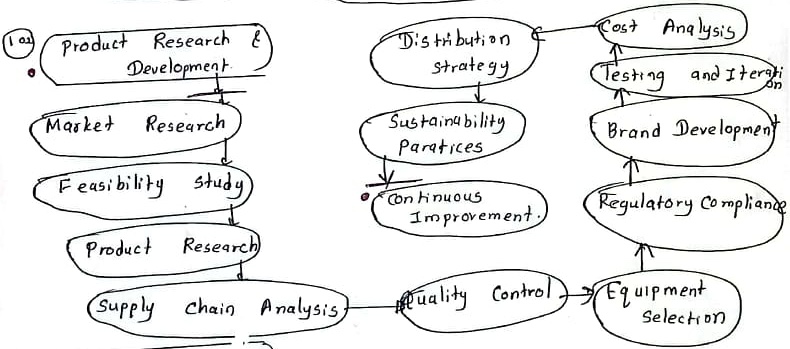 1 a)
Product Research &
Development.
Market Research
Feasibility Study
Product Research
Supply Chain Analysis
Quality Control
Equipment
Selection
Regulatory Compliance
Brand Development
Testing and Iteration
Cost Analysis
Distribution
Strategy
Sustainability
Paratices
Continuous
Improvement.